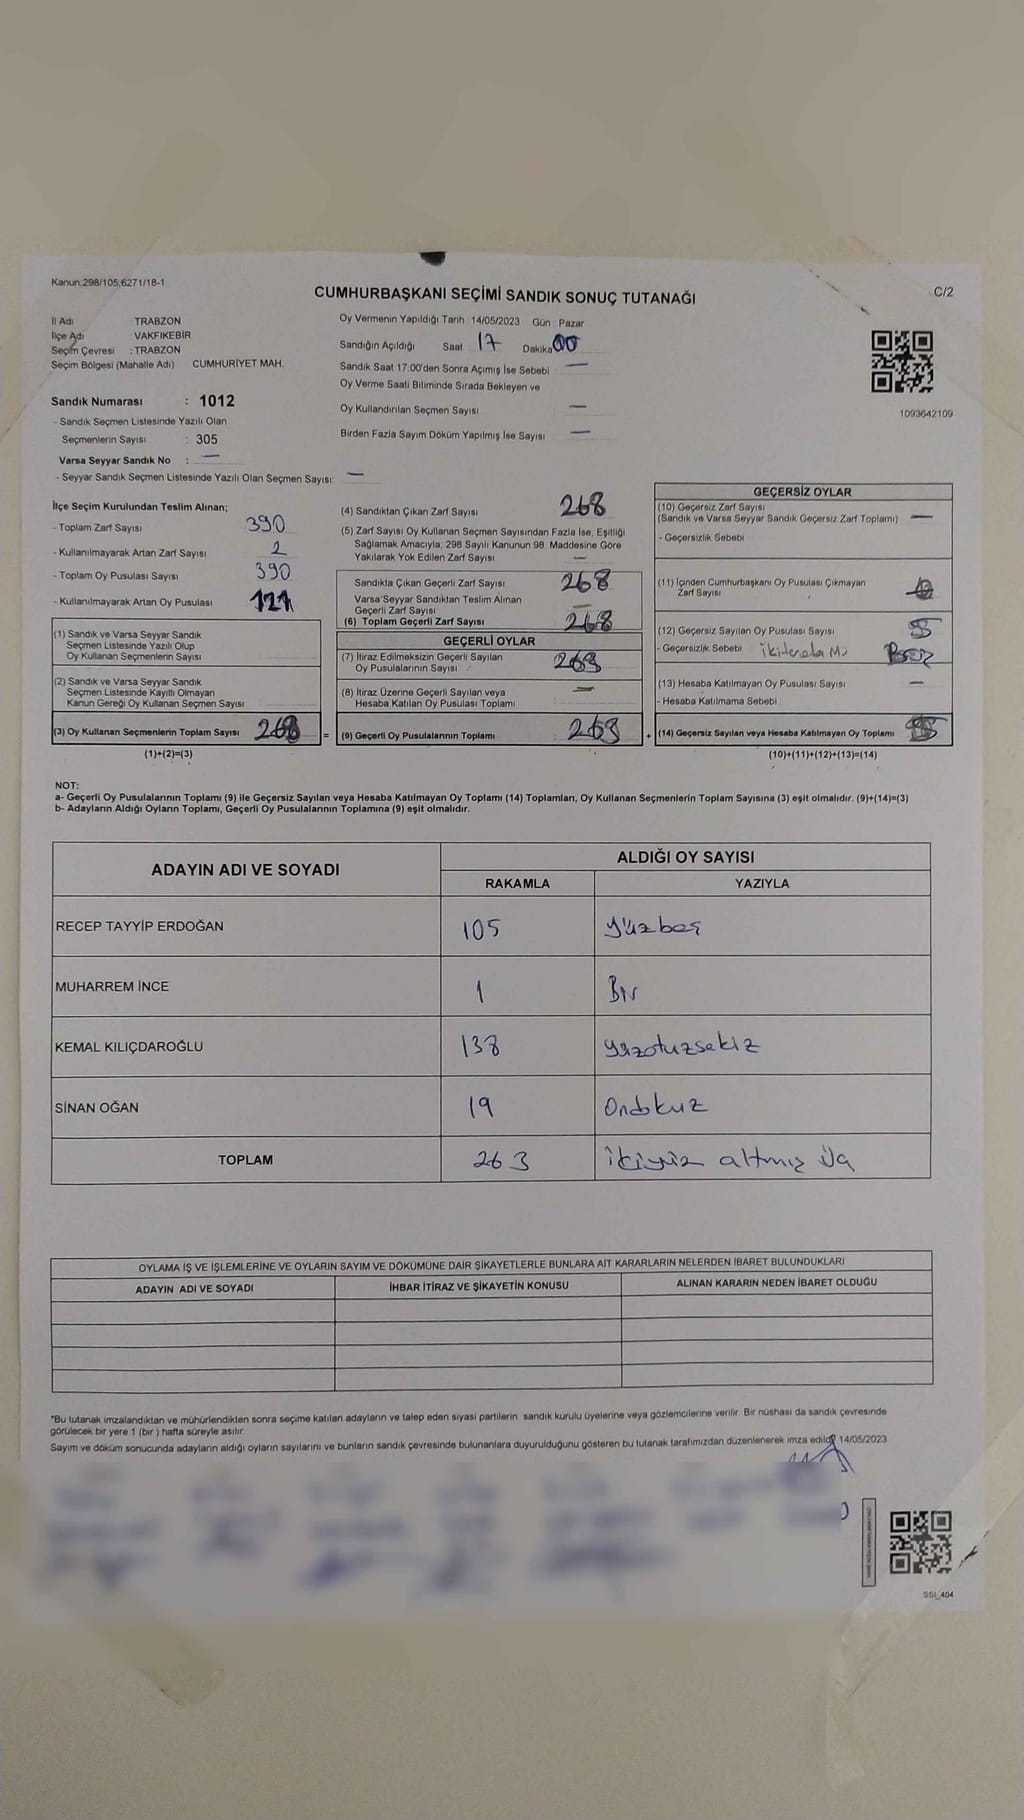 Kanun;298/105;6271/18-1
CUMHURBAŞKANI SEÇİMİ SANDIK SONUÇ TUTANAĞI
C/2
İl Adı TRABZON
İlçe Adı VAKFIKEBİR
Seçim Çevresi : TRABZON
Seçim Bölgesi (Mahalle Adı) CUMHURİYET MAH.
Sandık Numarası : 1012
- Sandık Seçmen Listesinde Yazılı Olan
Seçmenlerin Sayısı : 305
Varsa Seyyar Sandık No : —
- Seyyar Sandık Seçmen Listesinde Yazılı Olan Seçmen Sayısı: —
Oy Vermenin Yapıldığı Tarih 14/05/2023 Gün Pazar
Sandığın Açıldığı Saat 17 Dakika 00
Sandık Saat 17:00'den Sonra Açımış İse Sebebi —
Oy Verme Saati Bitiminde Sırada Bekleyen ve
Oy Kullandırılan Seçmen Sayısı —
Birden Fazla Sayım Döküm Yapılmış İse Sayısı —
1093642109
İlçe Seçim Kurulundan Teslim Alınan;
- Toplam Zarf Sayısı 390
- Kullanılmayarak Artan Zarf Sayısı 2
- Toplam Oy Pusulası Sayısı 390
- Kullanılmayarak Artan Oy Pusulası
(1) Sandık ve Varsa Seyyar Sandık
Seçmen Listesinde Yazılı Olup
Oy Kullanan Seçmenlerin Sayısı
(2) Sandık ve Varsa Seyyar Sandık
Seçmen Listesinde Kayıtlı Olmayan
Kanun Gereği Oy Kullanan Seçmen Sayısı
(3) Oy Kullanan Seçmenlerin Toplam Sayısı 268 =
(1)+(2)=(3)
(4) Sandıktan Çıkan Zarf Sayısı 268
(5) Zarf Sayısı Oy Kullanan Seçmen Sayısından Fazla İse, Eşitliği
Sağlamak Amacıyla, 298 Sayılı Kanunun 98. Maddesine Göre
Yakılarak Yok Edilen Zarf Sayısı —
Sandıkta Çıkan Geçerli Zarf Sayısı 268
Varsa Seyyar Sandıktan Teslim Alınan
Geçerli Zarf Sayısı —
(6) Toplam Geçerli Zarf Sayısı 268
GEÇERLİ OYLAR
(7) İtiraz Edilmeksizin Geçerli Sayılan
Oy Pusulalarının Sayısı 263
(8) İtiraz Üzerine Geçerli Sayılan veya
Hesaba Katılan Oy Pusulası Toplamı —
(9) Geçerli Oy Pusulalarının Toplamı 263 +
GEÇERSİZ OYLAR
(10) Geçersiz Zarf Sayısı
(Sandık ve Varsa Seyyar Sandık Geçersiz Zarf Toplamı) —
- Geçersizlik Sebebi
(11) İçinden Cumhurbaşkanı Oy Pusulası Çıkmayan
Zarf Sayısı
(12) Geçersiz Sayılan Oy Pusulası Sayısı 5
- Geçersizlik Sebebi
(13) Hesaba Katılmayan Oy Pusulası Sayısı —
- Hesaba Katılmama Sebebi
(14) Geçersiz Sayılan veya Hesaba Katılmayan Oy Toplamı 5
(10)+(11)+(12)+(13)=(14)
NOT:
a- Geçerli Oy Pusulalarının Toplamı (9) ile Geçersiz Sayılan veya Hesaba Katılmayan Oy Toplamı (14) Toplamları, Oy Kullanan Seçmenlerin Toplam Sayısına (3) eşit olmalıdır. (9)+(14)=(3)
b- Adayların Aldığı Oyların Toplamı, Geçerli Oy Pusulalarının Toplamına (9) eşit olmalıdır.
ADAYIN ADI VE SOYADI ALDIĞI OY SAYISI
RAKAMLA YAZIYLA
RECEP TAYYİP ERDOĞAN 105 yüzbeş
MUHARREM İNCE 1 Bir
KEMAL KILIÇDAROĞLU 138 yüzotuzsekiz
SİNAN OĞAN 19 Ondokuz
TOPLAM 263 ikiyüz altmış üç
OYLAMA İŞ VE İŞLEMLERİNE VE OYLARIN SAYIM VE DÖKÜMÜNE DAİR ŞİKAYETLERLE BUNLARA AİT KARARLARIN NELERDEN İBARET BULUNDUKLARI
ADAYIN ADI VE SOYADI İHBAR İTİRAZ VE ŞİKAYETİN KONUSU ALINAN KARARIN NEDEN İBARET OLDUĞU
*Bu tutanak imzalandıktan ve mühürlendikten sonra seçime katılan adayların ve talep eden siyasi partilerin sandık kurulu üyelerine veya gözlemcilerine verilir. Bir nüshası da sandık çevresinde
görülecek bir yere 1 (bir ) hafta süreyle asılır.
Sayım ve döküm sonucunda adayların aldığı oyların sayılarını ve bunların sandık çevresinde bulunanlara duyurulduğunu gösteren bu tutanak tarafımızdan düzenlenerek imza edildi 14/05/2023
SSI_404